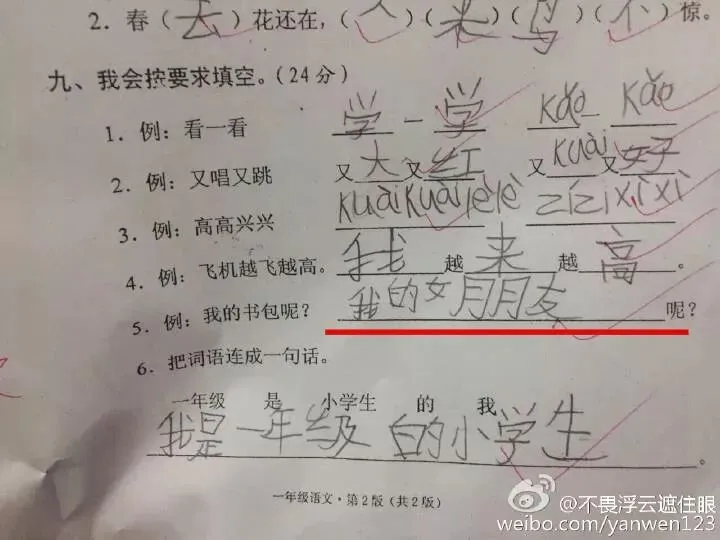 2. 春(去)花还在,(人)(来)(鸟)(不)惊。
九、我会按要求填空。(24分)
1. 例:看一看 学一学 kǎo一kǎo
2. 例:又唱又跳 又大又红 又kuài又好
3. 例:高高兴兴 kuàikuàilèlè zízixìxì
4. 例:飞机越飞越高。 我越来越高。
5. 例:我的书包呢? 我的女朋友呢?
6. 把词语连成一句话。
一年级 是 小学生 的 我
我是一年级的小学生。
一年级语文·第2版(共2版)
@不畏浮云遮住眼
weibo.com/yanwen123